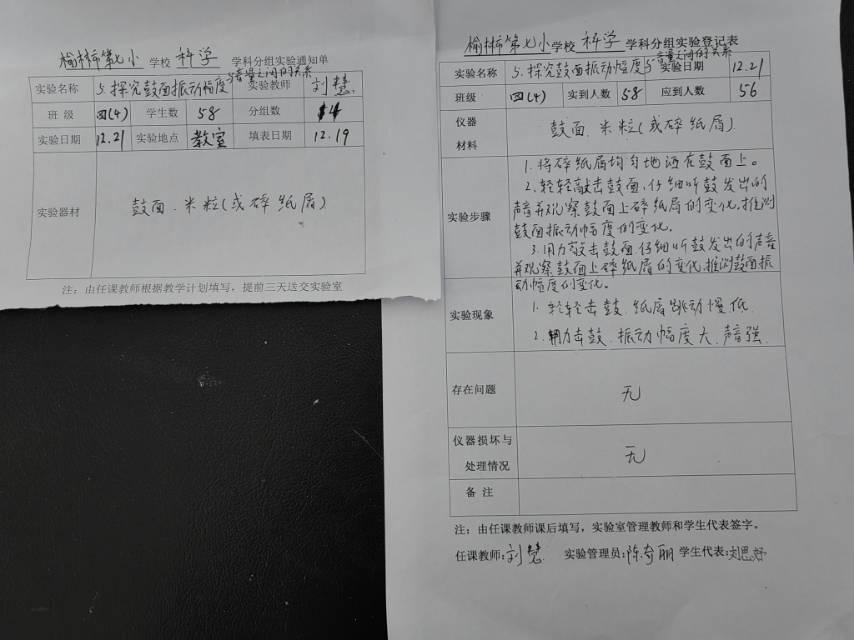 榆林市第七小学校 科学 学科分组实验通知单
实验名称 5.探究鼓面振动幅度与音量之间的关系 实验教师 刘慧
班级 四(4) 学生数 58 分组数 14
实验日期 12.21 实验地点 教室 填表日期 12.19
实验器材 鼓面、米粒(或碎纸屑)
注：由任课教师根据教学计划填写，提前三天送交实验室
榆林市第七小学校 科学 学科分组实验登记表
实验名称 5.探究鼓面振动幅度与音量之间的关系 实验日期 12.21
班级 四(4) 实到人数 58 应到人数 56
仪器
材料 鼓面、米粒(或碎纸屑)
实验步骤
1.将碎纸屑均匀地洒在鼓面上。
2.轻轻敲击鼓面,仔细听鼓发出的
声音并观察鼓面上碎纸屑的变化,推测
鼓面振动幅度的变化。
3.用力敲击鼓面仔细听鼓发出的声音
并观察鼓面上碎纸屑的变化,推测鼓面振
动幅度的变化。
实验现象
1.轻轻击鼓、纸屑跳动慢低
2.用力击鼓、振动幅度大、声音强
存在问题 无
仪器损坏与
处理情况 无
备注
注：由任课教师课后填写，实验室管理教师和学生代表签字。
任课教师:刘慧 实验管理员:陈奇丽 学生代表:刘思妤